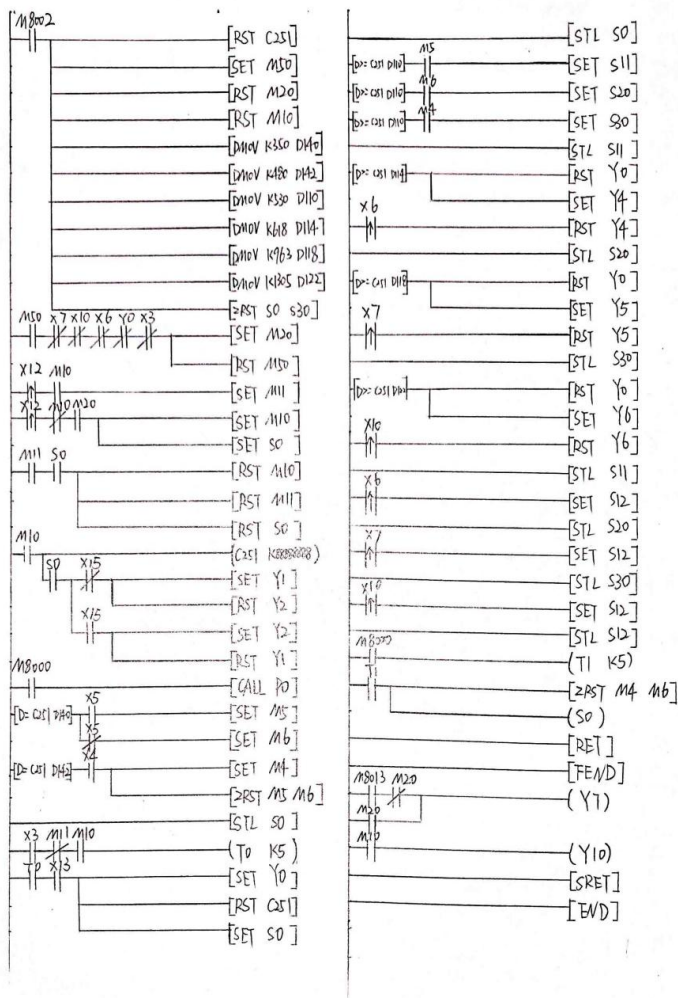 M8002
[RST C251]
[SET M50]
[RST M20]
[RST M10]
[DMOV K350 D140]
[DMOV K480 D142]
[DMOV K530 D110]
[DMOV K618 D114]
[DMOV K963 D118]
[DMOV K1305 D122]
[ZRST S0 S30]
M50 X7 X10 X6 Y0 X3
[SET M20]
[RST M50]
X12 M10
[SET M11]
X12 M10 M20
[SET M10]
[SET S0]
M11 S0
[RST M10]
[RST M11]
[RST S0]
M10
(C251
S0 X15
[SET Y1]
[RST Y2]
X15
[SET Y2]
[RST Y1]
M8000
[CALL P0]
[D= C251 D140] X5
[SET M5]
X5
[SET M6]
[D= C251 D142] X4
[SET M4]
[ZRST M5 M6]
[STL S0]
X3 M11 M10
(T0 K5)
T0 X13
[SET Y0]
[RST C251]
[SET S0]
[STL S0]
[D>= C251 D110] M5
[SET S11]
[D>= C251 D110] M6
[SET S20]
[D>= C251 D110] M4
[SET S30]
[STL S11]
[D>= C251 D114]
[RST Y0]
[SET Y4]
X6
[RST Y4]
[STL S20]
[D>= C251 D118]
[RST Y0]
[SET Y5]
X7
[RST Y5]
[STL S30]
[D>= C251 D122]
[RST Y0]
[SET Y6]
X10
[RST Y6]
[STL S11]
X6
[SET S12]
[STL S20]
X7
[SET S12]
[STL S30]
X10
[SET S12]
[STL S12]
M8000
(T1 K5)
T1
[ZRST M4 M6]
(S0)
[RET]
[FEND]
M8013 M20
(Y7)
M20
M10
(Y10)
[SRET]
[END]